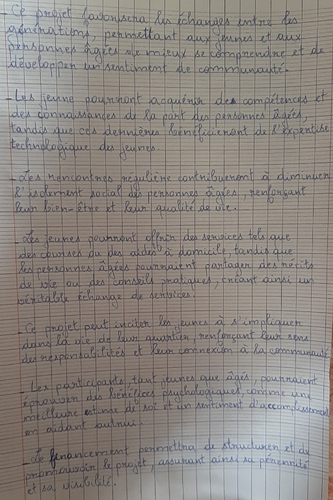 Ce projet favorisera les échanges entre les
générations, permettant aux jeunes et aux
personnes âgées de mieux se comprendre et de
développer un sentiment de communauté.
- Les jeune pourront acquérir des compétences et
des connaissances de la part des personnes âgées,
tandis que ces dernières bénéficieront de l'expertise
technologique des jeunes.
- Les rencontres régulière contribueront à diminuer
l'isolement social des personnes âgées, renforçant
leur bien-être et leur qualité de vie.
- Les jeunes pourront offrir des services tels que
des courses ou des aides à domicile, tandis que
les personnes âgées pourraient partager des récits
de vie ou des conseils pratiques, créant ainsi un
véritable échange de services.
- Ce projet peut inciter les jeunes à s'impliquer
dans la vie de leur quartier, renforçant leur sens
des responsabilités et leur connexion à la communauté
- Les participants, tant jeunes que âgés, pourraient
éprouver des bénéfices psychologiques, comme une
meilleure estime de soi et un sentiment d'accomplissement
en aidant autrui.
- Le financement permettra de structurer et de
promouvoir le projet, assurant ainsi sa pérennité
et sa visibilité.